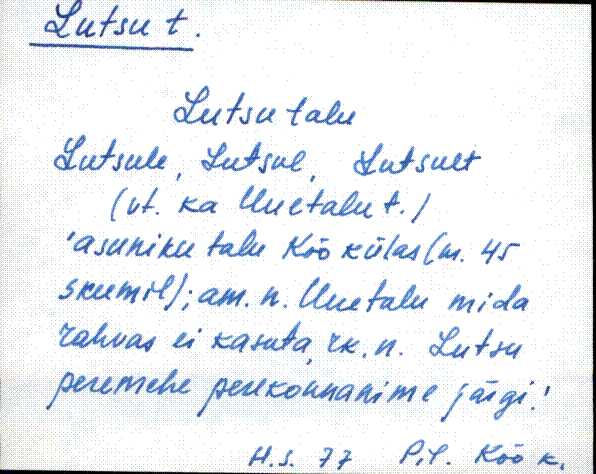 Lutsu t.
Lutsu talu
Lutsule, Lutsul, Lutsult
(vt. ka Uuetalu t.)
'asuniku talu Köo külas (m. 45
skeemil); am. n. Uuetalu mida
rahvas ei kasuta, rk. n. Lutsu
peremehe perekonnanime järgi.'
H.S. 77 Pil. Köo k.